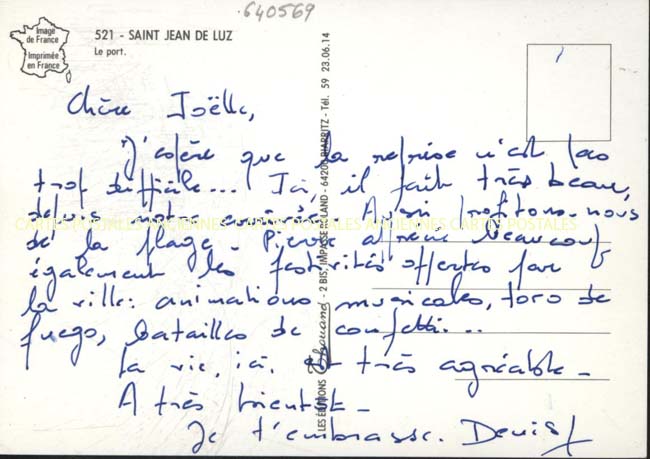 640569
Image
de France
Imprimée
en France
521 - SAINT JEAN DE LUZ
Le port.
Chère Joëlle,
J'espère que la reprise n'est pas
trop difficile... Ici, il fait très beau,
depuis notre arrivée. Aussi profitons-nous
de la plage. Pierre apprécie beaucoup
également les festivités offertes par
la ville: animations musicales, toro de
fuego, batailles de confetti...
La vie, ici, est très agréable.
A très bientôt.
Je t'embrasse. Denis
LES ÉDITIONS Chouand - 2 BIS, IMPASSE ROLAND - 64200 BIARRITZ - Tél. 59 23.06.14
CARTES POSTALES ANCIENNES CARTES POSTALES ANCIENNES CARTES POSTALES